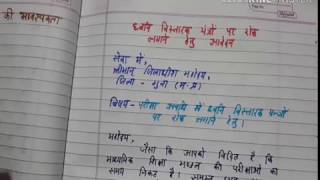 की आवश्यकता
ध्वनि विस्तारक यंत्रों पर रोक
लगाने हेतु आवेदन
सेवा में,
श्रीमान जिलाधीश महोदय,
जिला - गुना (म.प्र)
विषय - परीक्षा अवधि में ध्वनि विस्तारक यन्त्रों
पर रोक लगाने हेतु।
महोदय,
जैसा कि आपको विदित है कि
माध्यमिक शिक्षा मण्डल की परीक्षाओं का
समय निकट है।